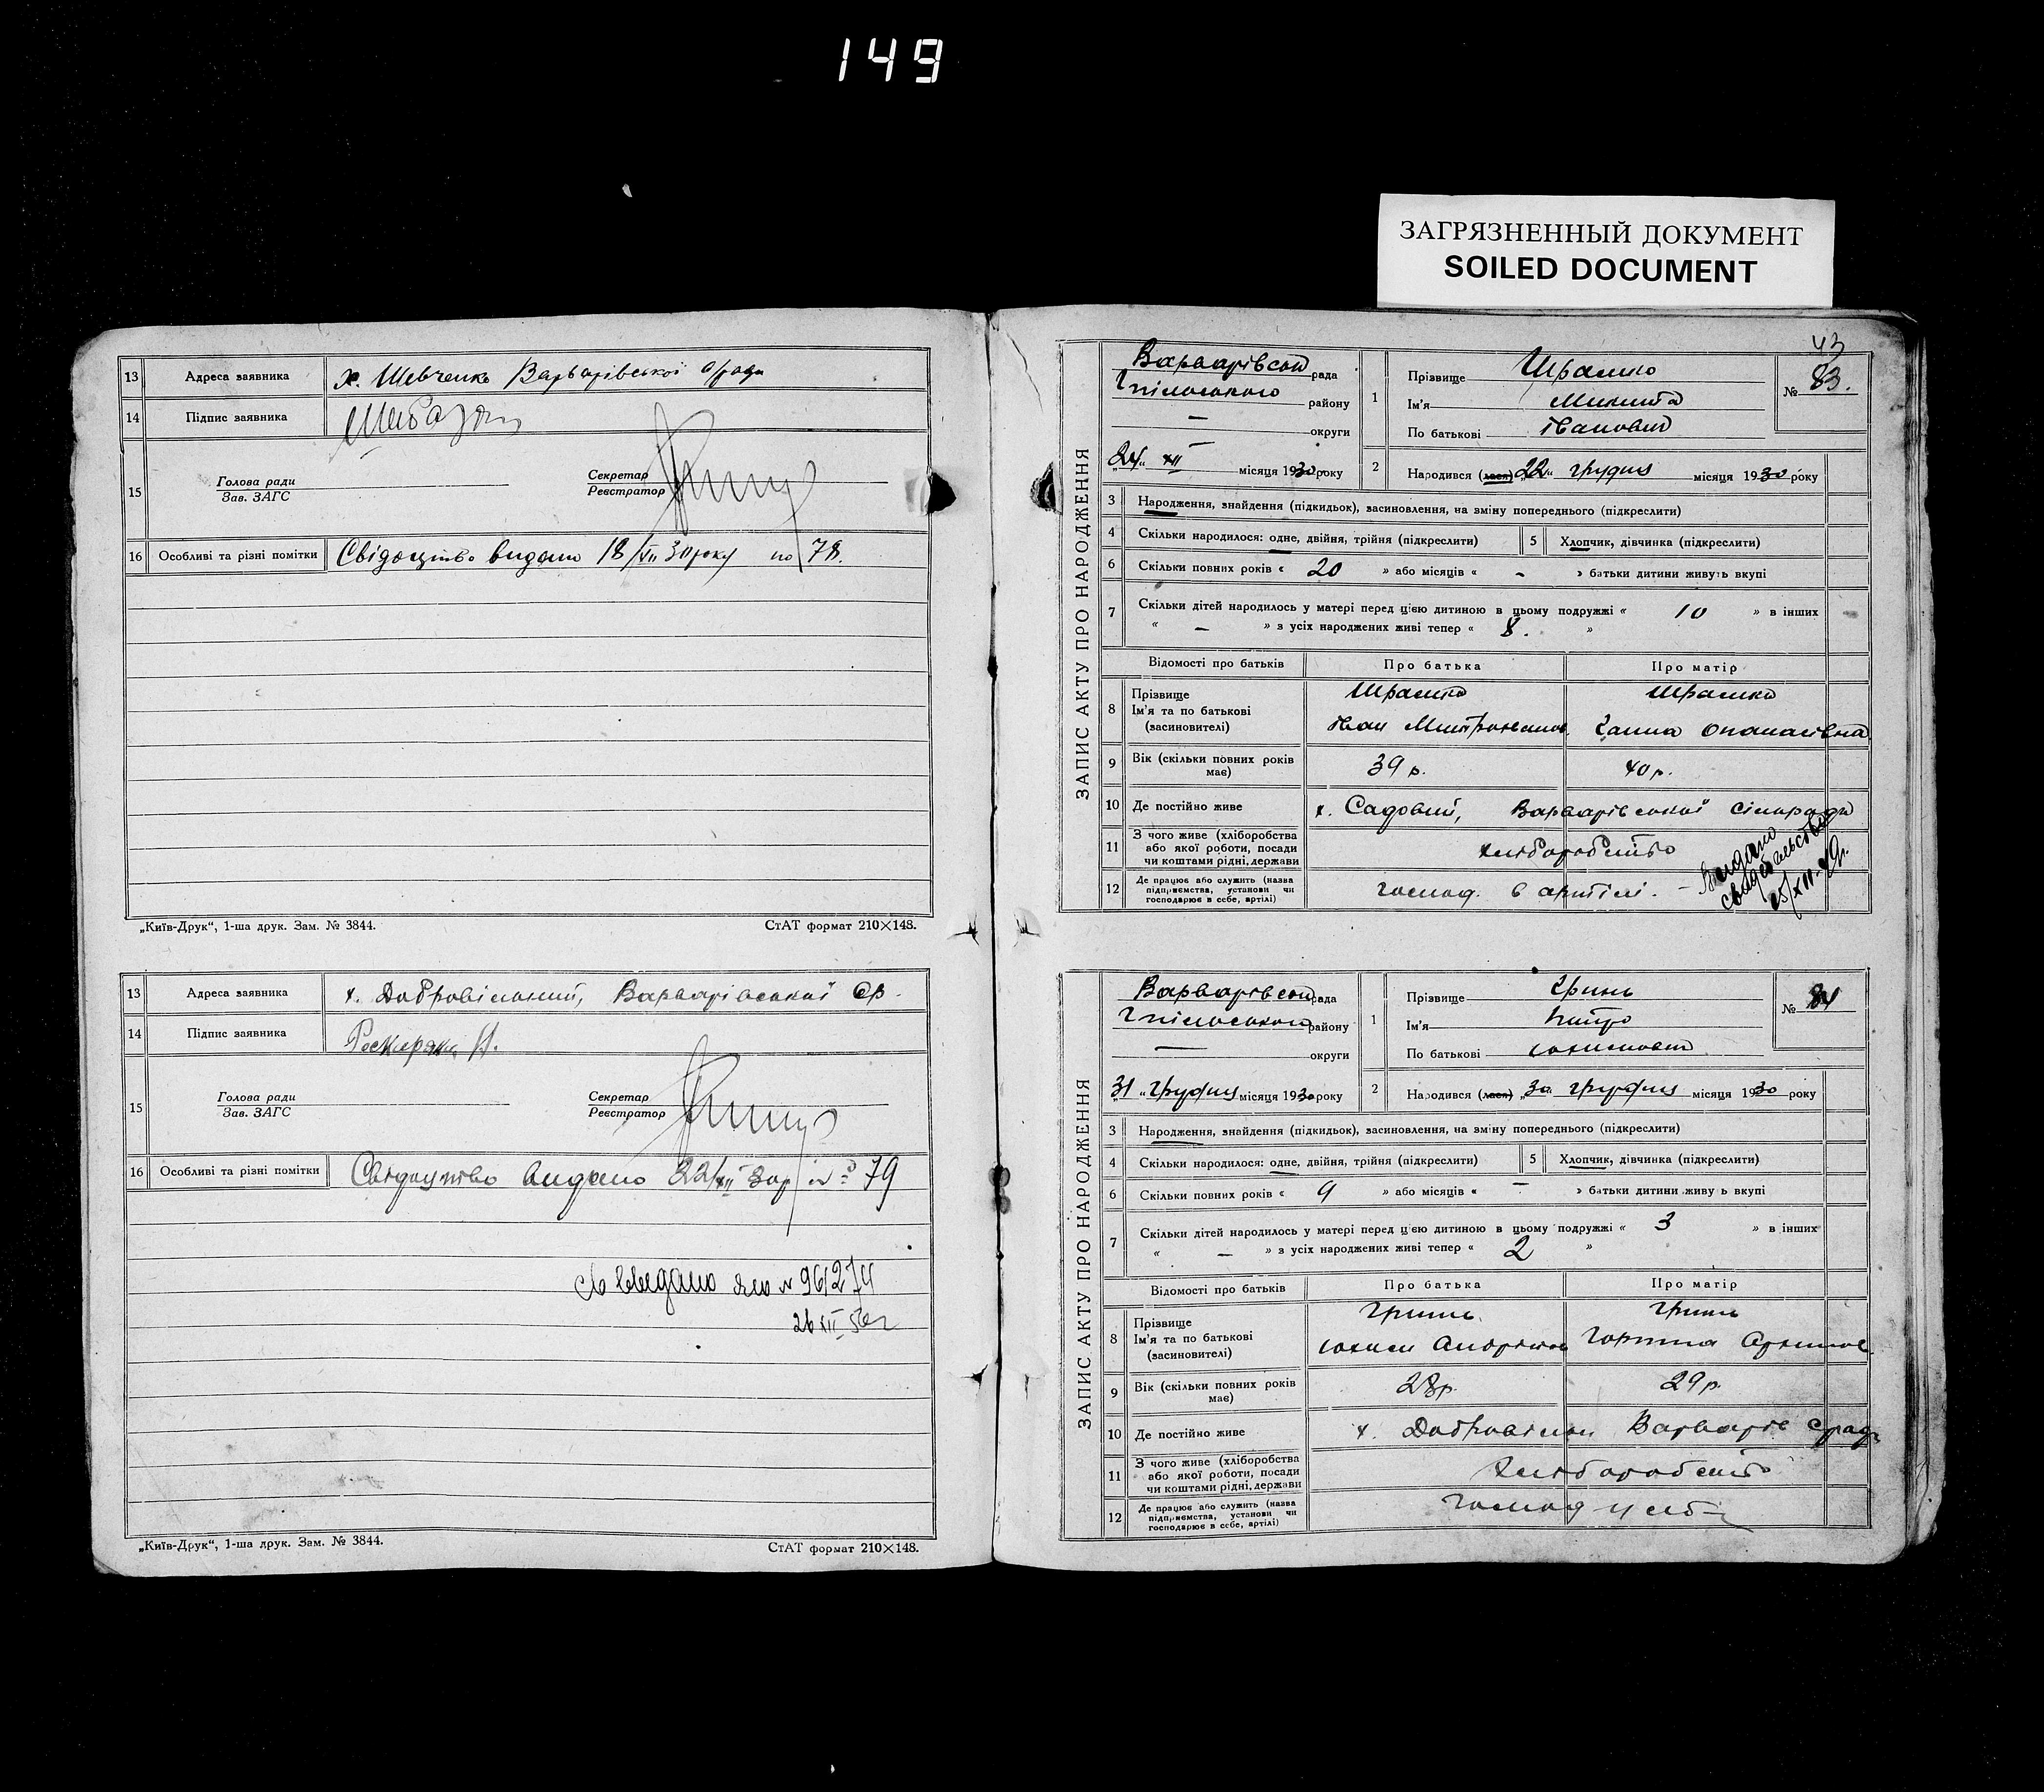 149
ЗАГРЯЗНЕННЫЙ ДОКУМЕНТ
SOILED DOCUMENT
13 Адреса заявника х. Шевченко Варварівської с/ради
14 Підпис заявника
15 Голова ради
Зав. ЗАГС
Секретар
Реєстратор
16 Особливі та різні помітки Свідоцтво видано 18/XII 30 року по 78.
„Київ-Друк“, 1-ша друк. Зам. № 3844. СтАТ формат 210×148.
13 Адреса заявника х. Добровільний, Варварівської ср.
14 Підпис заявника
15 Голова ради
Зав. ЗАГС
Секретар
Реєстратор
16 Особливі та різні помітки Свідоцтво видано 22/XII 30р 79
св видано № 96/274
26 XII 56г
„Київ-Друк“, 1-ша друк. Зам. № 3844. СтАТ формат 210×148.
43
ЗАПИС АКТУ ПРО НАРОДЖЕННЯ
Варварівськ рада
району
— округи
„24“ XII місяця 1930 року
1 Прізвище
Ім'я Микита
По батькові Іванович
№ 83.
2 Народився (лася) „22“ грудня місяця 1930 року
3 Народження, знайдення (підкидьок), засиновлення, на зміну попереднього (підкреслити)
4 Скільки народилося: одне, двійня, трійня (підкреслити) 5 Хлопчик, дівчинка (підкреслити)
6 Скільки повних років « 20 » або місяців « - » батьки дитини живуть вкупі
7 Скільки дітей народилось у матері перед цією дитиною в цьому подружжі « 10 » в інших
« — » з усіх народжених живі тепер « 8. »
Відомості про батьків Про батька Про матір
8 Прізвище
Ім'я та по батькові Іван Митрофанов. Ганна Опанасівна
(засиновителі)
9 Вік (скільки повних років має) 39 р. 40 р.
10 Де постійно живе х. Садовий, Варварівської сільради
11 З чого живе (хліборобства
або якої роботи, посади
чи коштами рідні, держави хліборобство
12 Де працює або служить (назва
підприємства, установи чи
господарює в себе, артілі) господ. в артілі. —
Видано
свидетельство
25/XII-49г.
ЗАПИС АКТУ ПРО НАРОДЖЕННЯ
Варварівськ рада
району
— округи
„31“ грудня місяця 1930 року
1 Прізвище Гринь
Ім'я Петро
По батькові Юхимович
№ 84
2 Народився (лася) „30“ грудня місяця 1930 року
3 Народження, знайдення (підкидьок), засиновлення, на зміну попереднього (підкреслити)
4 Скільки народилося: одне, двійня, трійня (підкреслити) 5 Хлопчик, дівчинка (підкреслити)
6 Скільки повних років « 9 » або місяців « - » батьки дитини живу ь вкупі
7 Скільки дітей народилось у матері перед цією дитиною в цьому подружжі « 3 » в інших
« — » з усіх народжених живі тепер « 2 »
Відомості про батьків Про батька Про матір
8 Прізвище Гринь. Гринь
Ім'я та по батькові Юхим Андріянов Горпина Архипов.
(засиновителі)
9 Вік (скільки повних років має) 28р. 29 р.
10 Де постійно живе х. Добровільн Варварів сради
11 З чого живе (хліборобства
або якої роботи, посади
чи коштами рідні, держави хліборобство
12 Де працює або служить (назва
підприємства, установи чи
господарює в себе, артілі) господ у себе